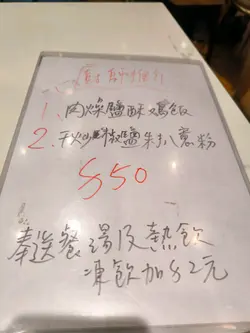 廚師推介
1. 肉燥鹽酥鷄飯
2. 秋 椒鹽朱扒意粉
$50
奉送餐湯及熱飲
凍飲加$2元